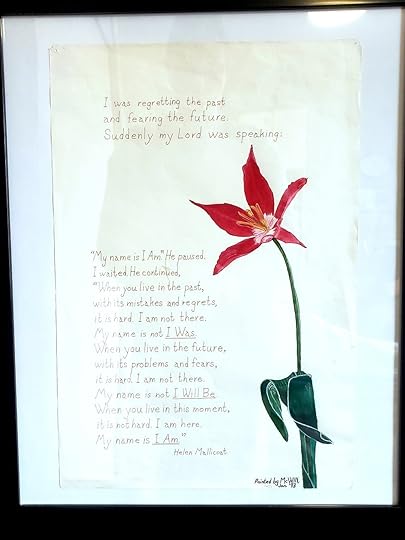 I was regretting the past
and fearing the future.
Suddenly my Lord was speaking:
"My name is I Am." He paused.
I waited. He continued,
"When you live in the past,
with its mistakes and regrets,
it is hard. I am not there.
My name is not I Was.
When you live in the future,
with its problems and fears,
it is hard. I am not there.
My name is not I Will Be.
When you live in this moment,
it is not hard. I am here.
My name is I Am."
Helen Mallicoat
Painted by
Jan